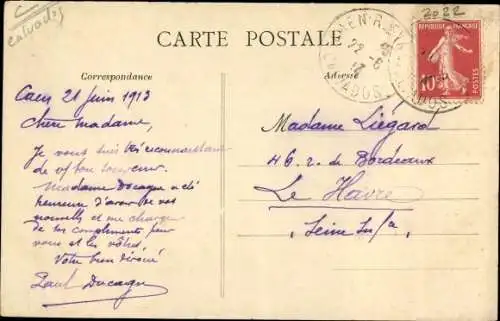 calvados
2022
CARTE POSTALE
Correspondance
Adresse
RÉPUBLIQUE FRANÇAISE
10c
POSTES
CAEN
CALVADOS
Caen 21 Juin 1913
Chère Madame,
Je vous suis très reconnaissant
de vo/ bon souvenir.
Madame Ducagne a été
heureuse d'avoir de vos
nouvelles et me charge
de ses compliments pour
vous et les vôtres.
Votre bien dévoué
Paul Ducagne
Madame Liégard
46, r. de Bordeaux
Le Havre
(Seine Infre